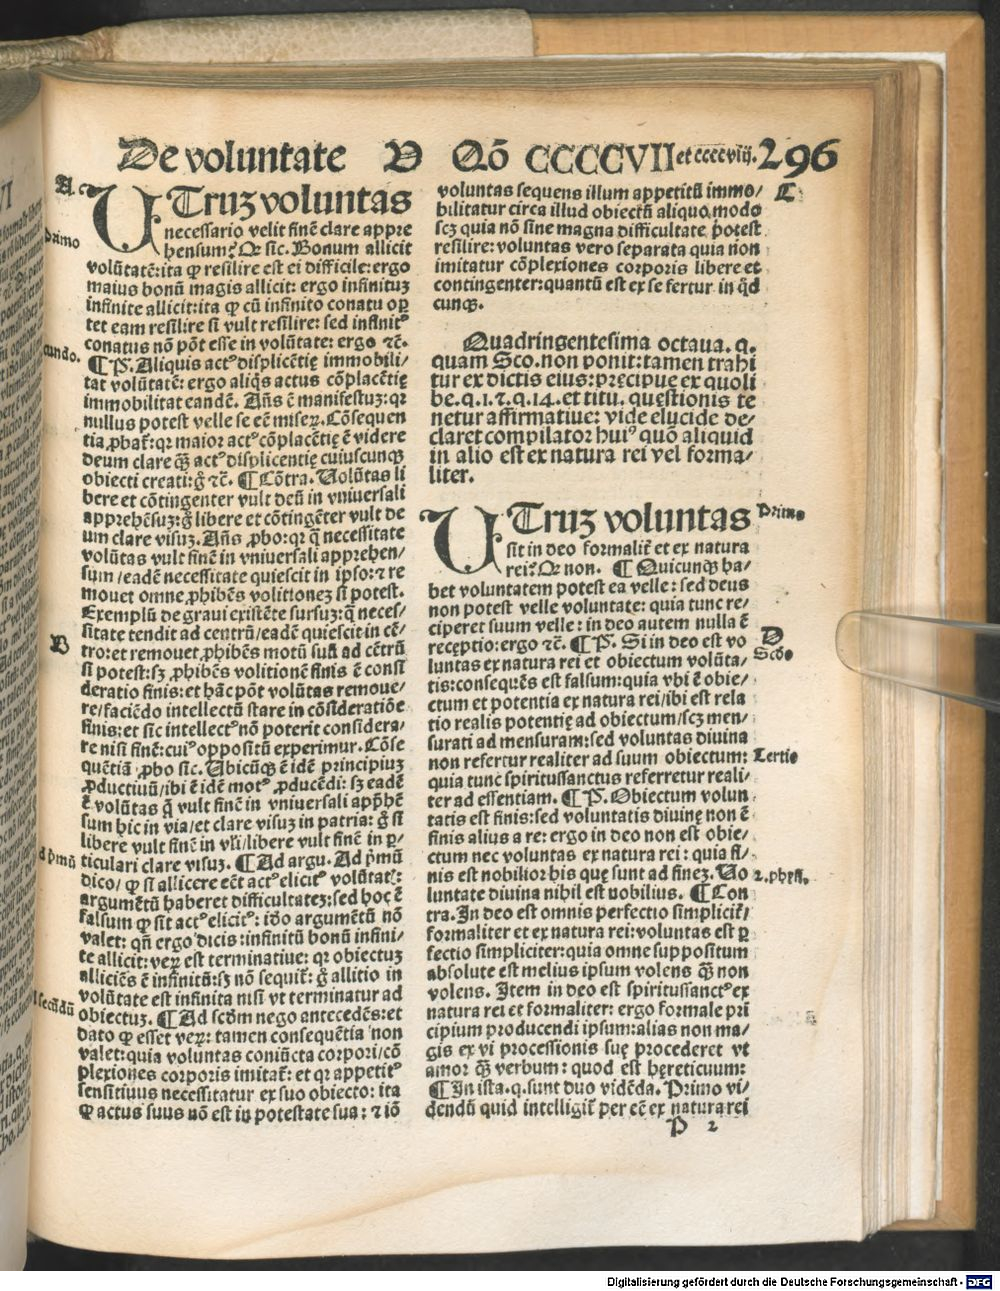 De voluntate V Qō CCCCVII et ccccviij. 296
A.
UTruȝ voluntas
necessario velit finē clare appre
Primo
hensum? Qꝛ sic. Bonum allicit
volūtatē: ita ꝙ resilire est ei difficile: ergo
maius bonū magis allicit: ergo infinituȝ
infinite allicit: ita ꝙ cū infinito conatu opꝛ
tet eam resilire si vult resilire: sed infinitꝰ
conatus nō pōt esse in volūtate: ergo ⁊c.
cundo.
¶ P̄. Aliquis actꝰ displicētię immobili/
tat volūtatē: ergo aliq̄s actus cōplacētię
immobilitat eandē. Añs ē manifestuȝ: qꝛ
nullus potest velle se eē miseꝝ. Cōsequen
tia ꝓbaĩ: qꝛ maior actꝰ cōplacētię ē videre
deum clare q̄ȝ actꝰ displicentię cuiuscunqȝ
obiecti creati: g̊ ⁊c. ¶ Cōtra. Volūtas li
bere et cōtingenter vult deū in vniuersali
apprehēsuȝ: g̊ libere et cōtingēter vult de
um clare visuȝ. Añs ꝓbo: qꝛ q̄ necessitate
volūtas vult finē in vniuersali apprehen/
sum/eadē necessitate quiescit in ipso: ⁊ re
mouet omne ꝓhibēs volitioneȝ si potest.
Exemplū de graui existēte sursuȝ: q̄ neces/
sitate tendit ad centrū/eadē quiescit in cē/
B
tro: et remouet ꝓhibēs motū suū ad cētrū
si potest: sȝ ꝓhibēs volitionē finis ē consi
deratio finis: et hāc pōt volūtas remoue/
re/faciēdo intellectū stare in cōsideratiōe
finis: et sic intellectꝰ nō poterit considera/
re nisi finē: cuiꝰ oppositū experimur. Cōse
quētiā ꝓbo sic. Ubicūqȝ ē idē principiuȝ
ꝓductiuū/ibi ē idē motꝰ ꝓducēdi: sȝ eadē
ē volūtas q̄ vult finē in vniuersali app̄hē
sum hic in via/et clare visuȝ in patria: g̊ si
libere vult finē in vl̄i/libere vult finē in ꝑ/
d p̄mū
ticulari clare visuȝ. ¶ Ad argu. Ad p̄mū
dico/ ꝙ si allicere eēt actꝰ elicitꝰ volūtat̄:
argumētū haberet difficultateȝ: sed hoc ē
falsum ꝙ sit actꝰ elicitꝰ: iḋo argumētū nō
valet: qñ ergo dicis: infinitū bonū infini/
te allicit: veꝝ est terminatiue: qꝛ obiectuȝ
alliciēs ē infinitū: sȝ nō sequit̄: g̊ allitio in
volūtate est infinita nisi vt terminatur ad
d secūdū
obiectuȝ. ¶ Ad scḋm nego antecedēs: et
dato ꝙ esset veꝝ: tamen consequētia non
valet: quia voluntas coniūcta corpori/cō
plexiones corporis imitat̄: et qꝛ appetitꝰ
sensitiuus necessitatur ex suo obiecto: ita
ꝙ actus suus nō est in potestate sua: ⁊ iō
voluntas sequens illum appetitū immo/
C
bilitatur circa illud obiectū aliquo modo
scȝ quia nō sine magna difficultate potest
resilire: voluntas vero separata quia non
imitatur cōplexiones corporis libere et
contingenter: quantū est ex se fertur in q̇d
cunqȝ.
Quadringentesima octaua. q.
quam Sco. non ponit: tamen trahi
tur ex dictis eius: pręcipue ex quoli
be. q. 1. ⁊. q. 14. et titu. questionis te
netur affirmatiue: vide elucide de/
claret compilator huiꝰ quō aliquid
in alio est ex natura rei vel forma/
liter.
UTruȝ voluntas
Primo
sit in deo formalit̄ et ex natura
rei? Qꝛ non. ¶ Quicunqȝ ha/
bet voluntatem potest ea velle: sed deus
non potest velle voluntate: quia tunc re/
ciperet suum velle: in deo autem nulla ē
D
receptio: ergo ⁊c. ¶ P̄. Si in deo est vo
Scḋo
luntas ex natura rei et obiectum volūta/
tis: consequēs est falsum: quia vbi ē obie/
ctum et potentia ex natura rei/ibi est rela
tio realis potentię ad obiectum/scȝ men/
surati ad mensuram: sed voluntas diuina
non refertur realiter ad suum obiectum:
Tertio
quia tunc spiritussanctus referretur reali/
ter ad essentiam. ¶ P̄. Obiectum volun
tatis est finis: sed voluntatis diuinę non ē
finis alius a re: ergo in deo non est obie/
ctum nec voluntas ex natura rei: quia fi/
nis est nobilior his quę sunt ad fineȝ. Vo
2. phys.
luntate diuina nihil est nobilius. ¶ Con
tra. In deo est omnis perfectio simplicit̄/
formaliter et ex natura rei: voluntas est ꝑ
fectio simpliciter: quia omne suppositum
absolute est melius ipsum volens q̄ȝ non
volens. Item in deo est spiritussanctꝰ ex
natura rei et formaliter: ergo formale pri
cipium producendi ipsum: alias non ma/
gis ex vi processionis suę procederet vt
amor q̄ȝ verbum: quod est hęreticuum:
¶ In ista. q. sunt duo vidēda. Primo vi/
dendū quid intelligit̄ per eē ex natura rei
P 2
Digitalisierung gefördert durch die Deutsche Forschungsgemeinschaft - DFG